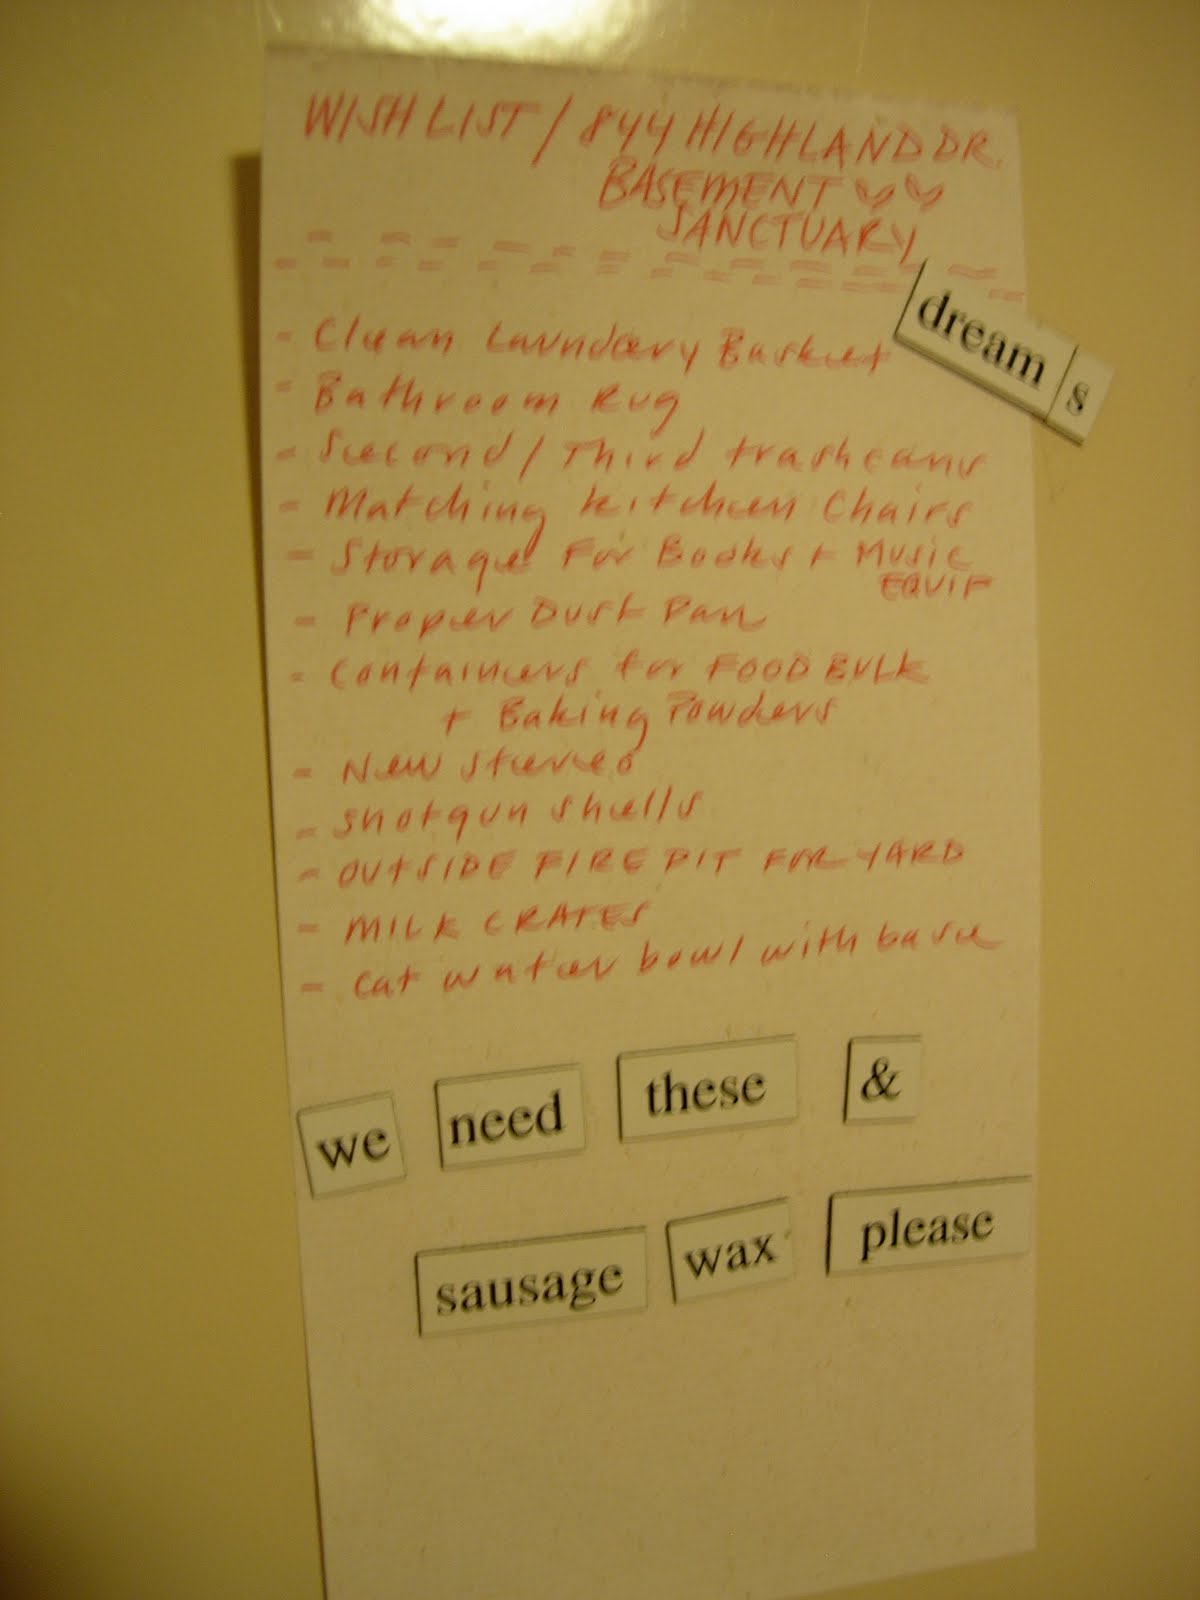 WISH LIST / 844 HIGHLAND DR.
BASEMENT
SANCTUARY
dream s
- Clean Laundery Basket
- Bathroom Rug
- Second / Third trashcans
- Matching kitchen Chairs
- Storage For Books + Music
EQUIP
- Proper Dust Pan
- Containers for FOOD BULK
+ Baking Powders
- New Stereo
- Shotgun shells
- OUTSIDE FIRE PIT FOR YARD
- MILK CRATES
- Cat water bowl with base
we need these &
sausage wax please